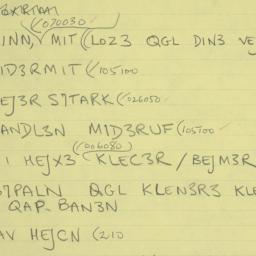 (070030)
INN, MIT (LOZ3 QGL DIN3 VEJ
ID3RMIT (105100
EJ3R S7TARK (026050
ANDL3N MID3RUF (105700
I HEJX3 (006080) KLEC3R / BEJM3R
S7PALN QGL KLEN3R3 KLE
QAP-BAN3N
AV HEJCN (210